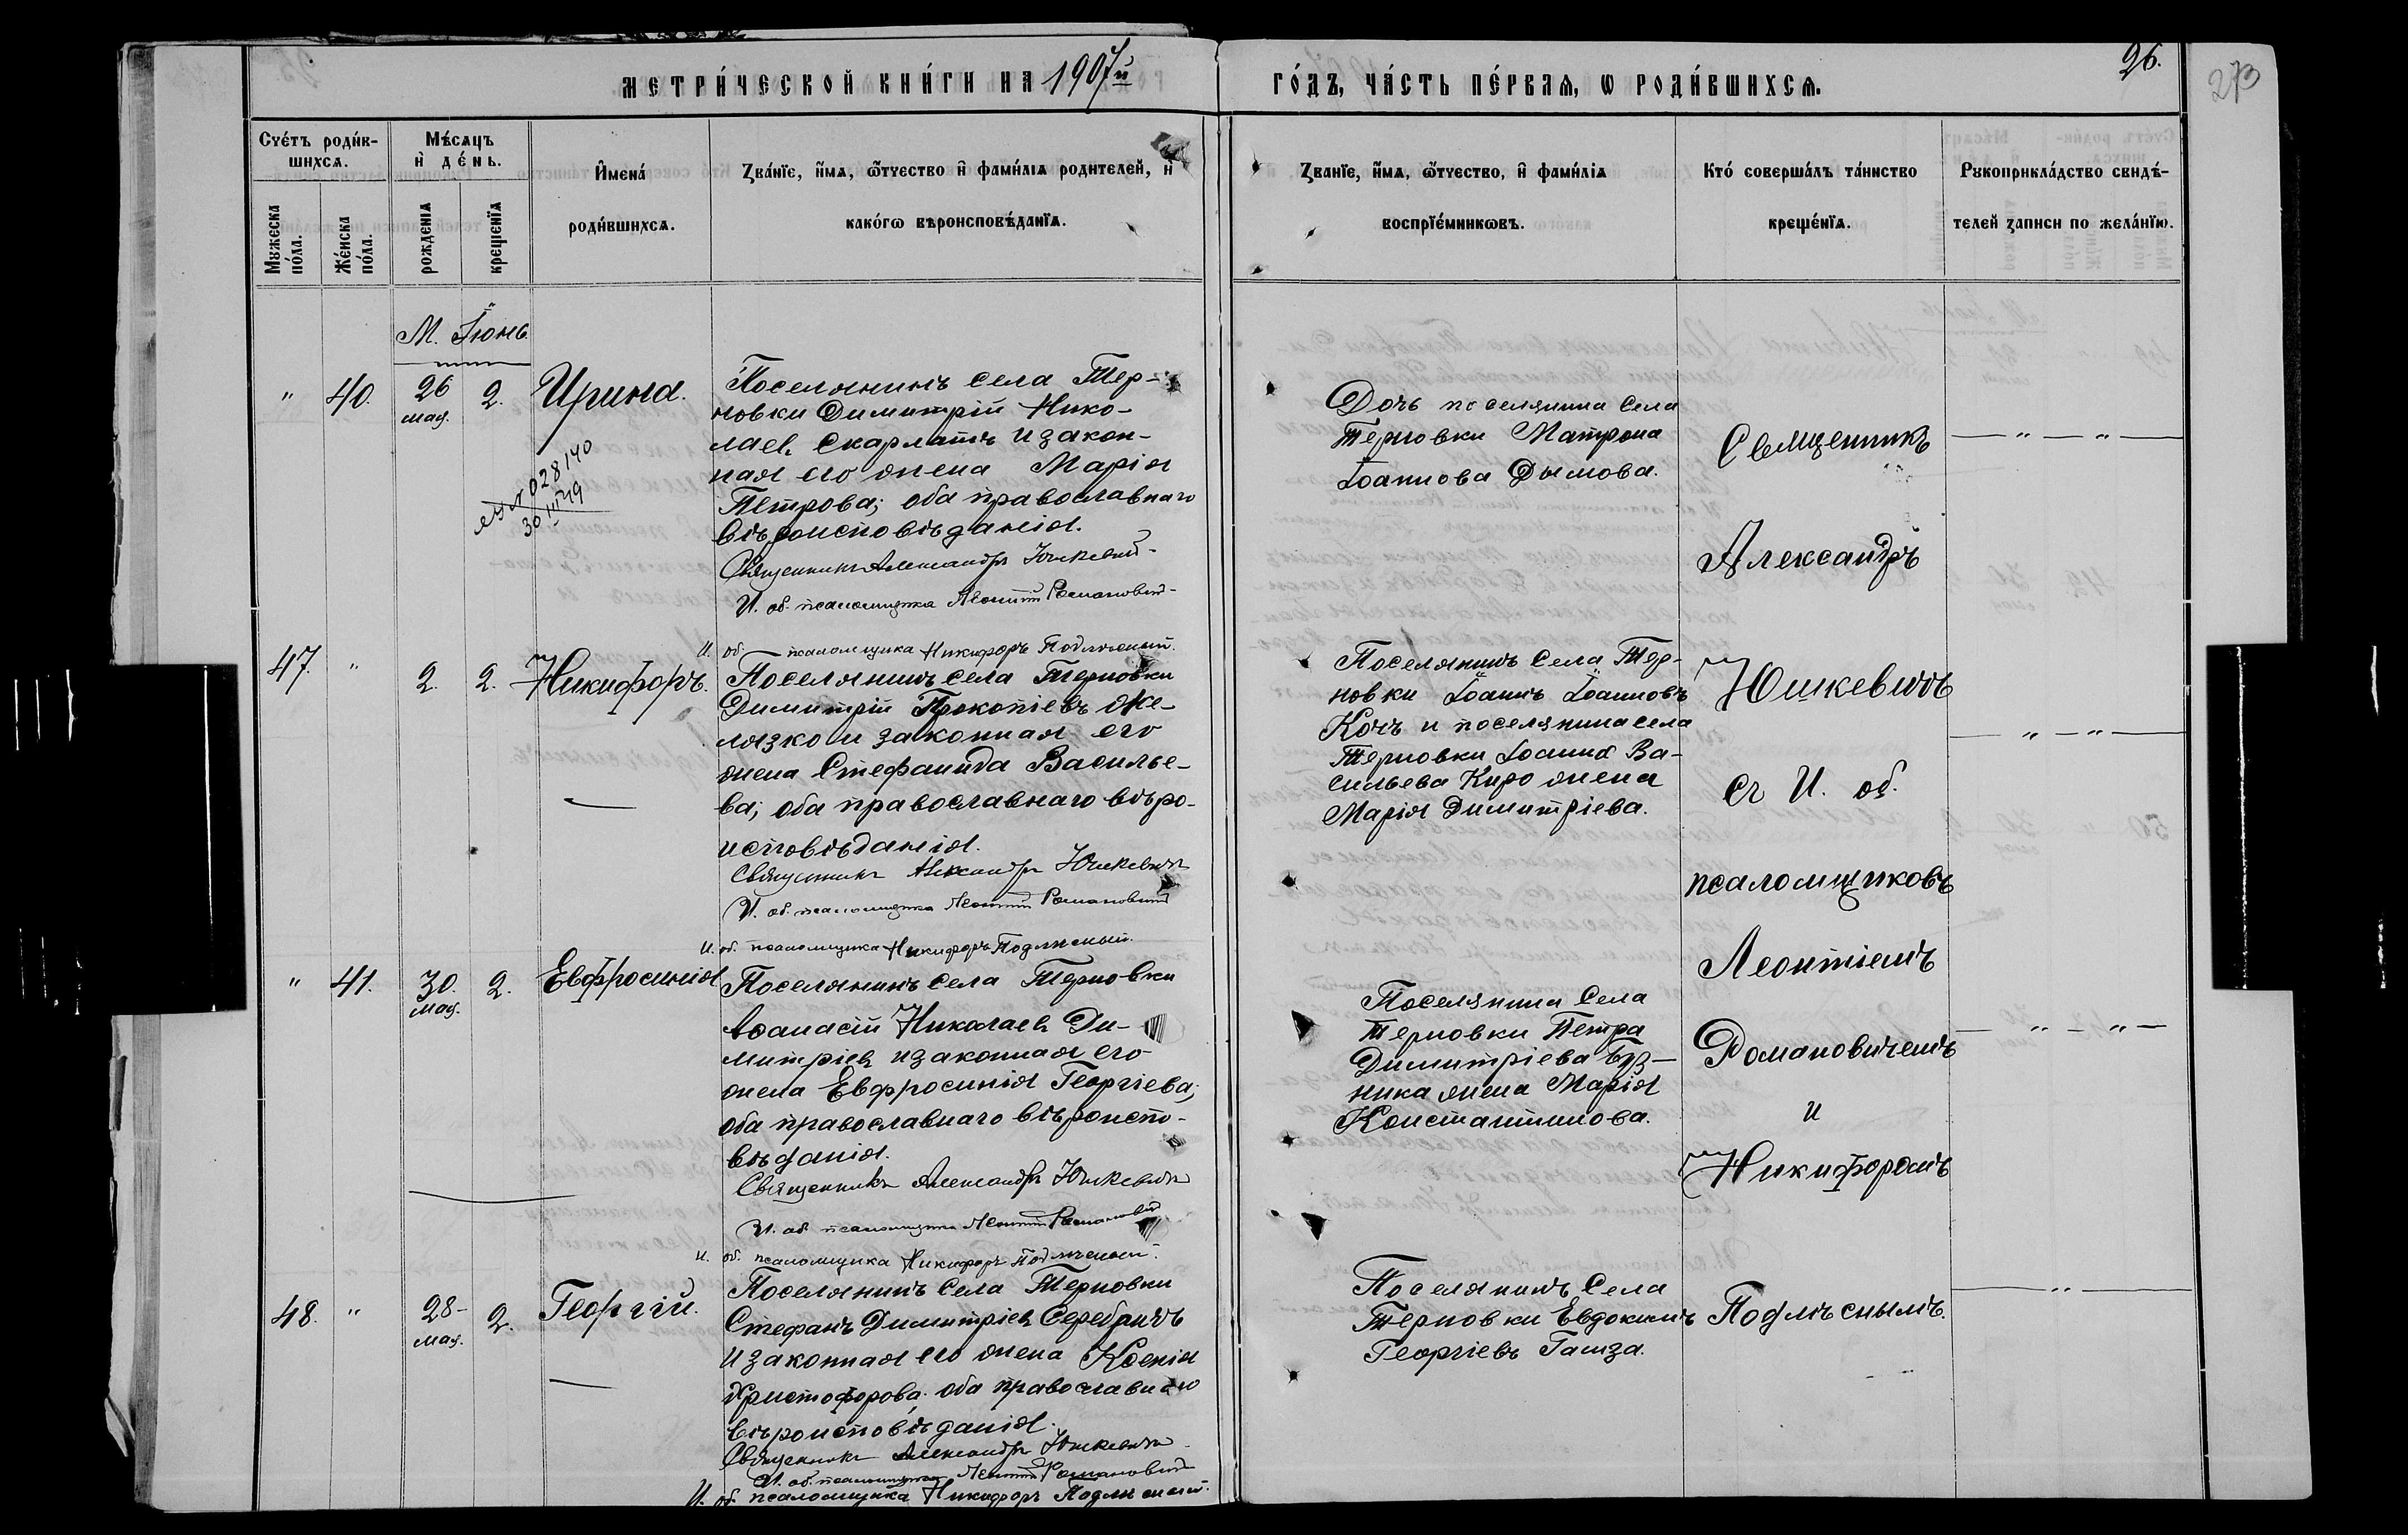 МЕТРИ́ЧЕСКОЙ КНИ́ГИ НА 1907й
ГО́ДЪ, ЧА́СТЬ ПЕ́РВАЯ, Ѡ РОДИ́ВШИХСЯ.
26.
273
Сче́тъ роди́в-
шихся.
Мѣ́сяцъ
и҆ де́нь.
Мꙋжеска
по́ла.
Же́нска
по́ла.
рожденїя
крещенїя
И҆мена́
роди́вшихся.
Зва́нїе, и҆́мя, ѻ҆́тчество и҆ фами́лїя родителей, и҆
како́гѡ вѣроисповѣ́данїя.
Званїе, и҆́мя, ѻ҆́тчество, и҆ фами́лїя
воспрїе́мникѡвъ.
Кто́ соверша́лъ та́инство
креще́нїя.
Рꙋкоприкла́дство свидѣ́-
телей записи по жела́нїю.
М. Іюнь.
" 40. 26 мая. 2. Ирина.
Поселянинъ села Тер-
новки Димитрій Нико-
лаевъ Скарлатъ и закон-
ная его жена Марія
Петрова; оба православнаго
вѣроисповѣданія.
Священникъ Александръ Юшкевичъ
И. об. псаломщика Леонтій Романовичъ
И. об. псаломщика Никифоръ Подлѣсный.
028140
30 III 49
Дочь поселянина села
Терновки Матрона
Іоаннова Дымова.
47. " 2. 2. Никифоръ.
Поселянинъ села Терновки
Димитрій Прокопіевъ Же-
лязко и законная его
жена Стефанида Василье-
ва; оба православнаго вѣро-
исповѣданія.
Священникъ Александръ Юшкевичъ
И. об. псаломщика Леонтій Романовичъ
И. об. псаломщика Никифоръ Подлѣсный.
Поселянинъ села Тер-
новки Іоаннъ Іоанновъ
Кочъ и поселянина села
Терновки Іоанна Ва-
сильева Киро жена
Марія Димитріева.
" 41. 30. мая. 2. Евфросинія
Поселянинъ села Терновки
Аѳанасій Николаевъ Ди-
митріевъ и законная его
жена Евфросинія Георгіева;
оба православнаго вѣроиспо-
вѣданія.
Священникъ Александръ Юшкевичъ
И. об. псаломщика Леонтій Романовичъ
И. об. псаломщика Никифоръ Подлѣсный.
Поселянина села
Терновки Петра
Димитріева Буз-
ника жена Марія
Константинова.
48. " 28 мая. 2. Георгій.
Поселянинъ села Терновки
Стефанъ Димитріевъ Серебричъ
и законная его жена Ксенія
Христофорова; оба православнаго
вѣроисповѣданія.
Священникъ Александръ Юшкевичъ
И. об. псаломщика Леонтій Романовичъ
И. об. псаломщика Никифоръ Подлѣсный.
Поселянинъ села
Терновки Евдокимъ
Георгіевъ Ганза.
Священникъ
Александръ
Юшкевичъ
съ И. об.
псаломщиковъ
Леонтіемъ
Романовичемъ
и
Никифоромъ
Подлѣснымъ.